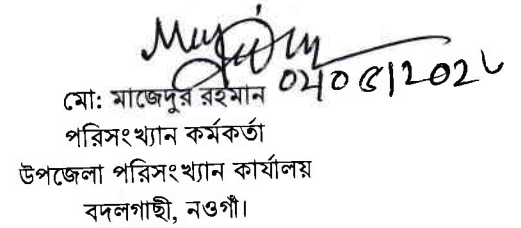 মো: মাজেদুর রহমান
পরিসংখ্যান কর্মকর্তা
উপজেলা পরিসংখ্যান কার্যালয়
বদলগাছী, নওগাঁ।